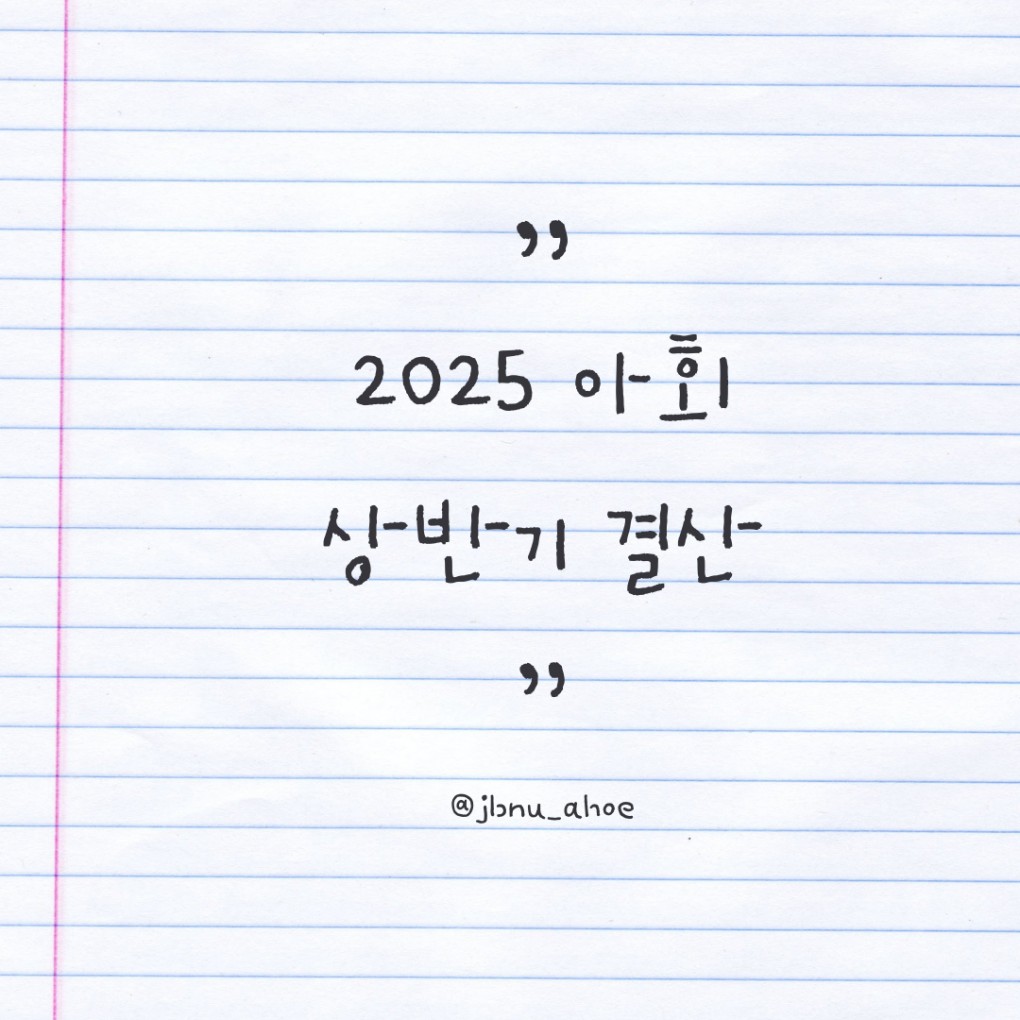 ”
2025 아회
상반기 결산
”
@jbnu_ahoe